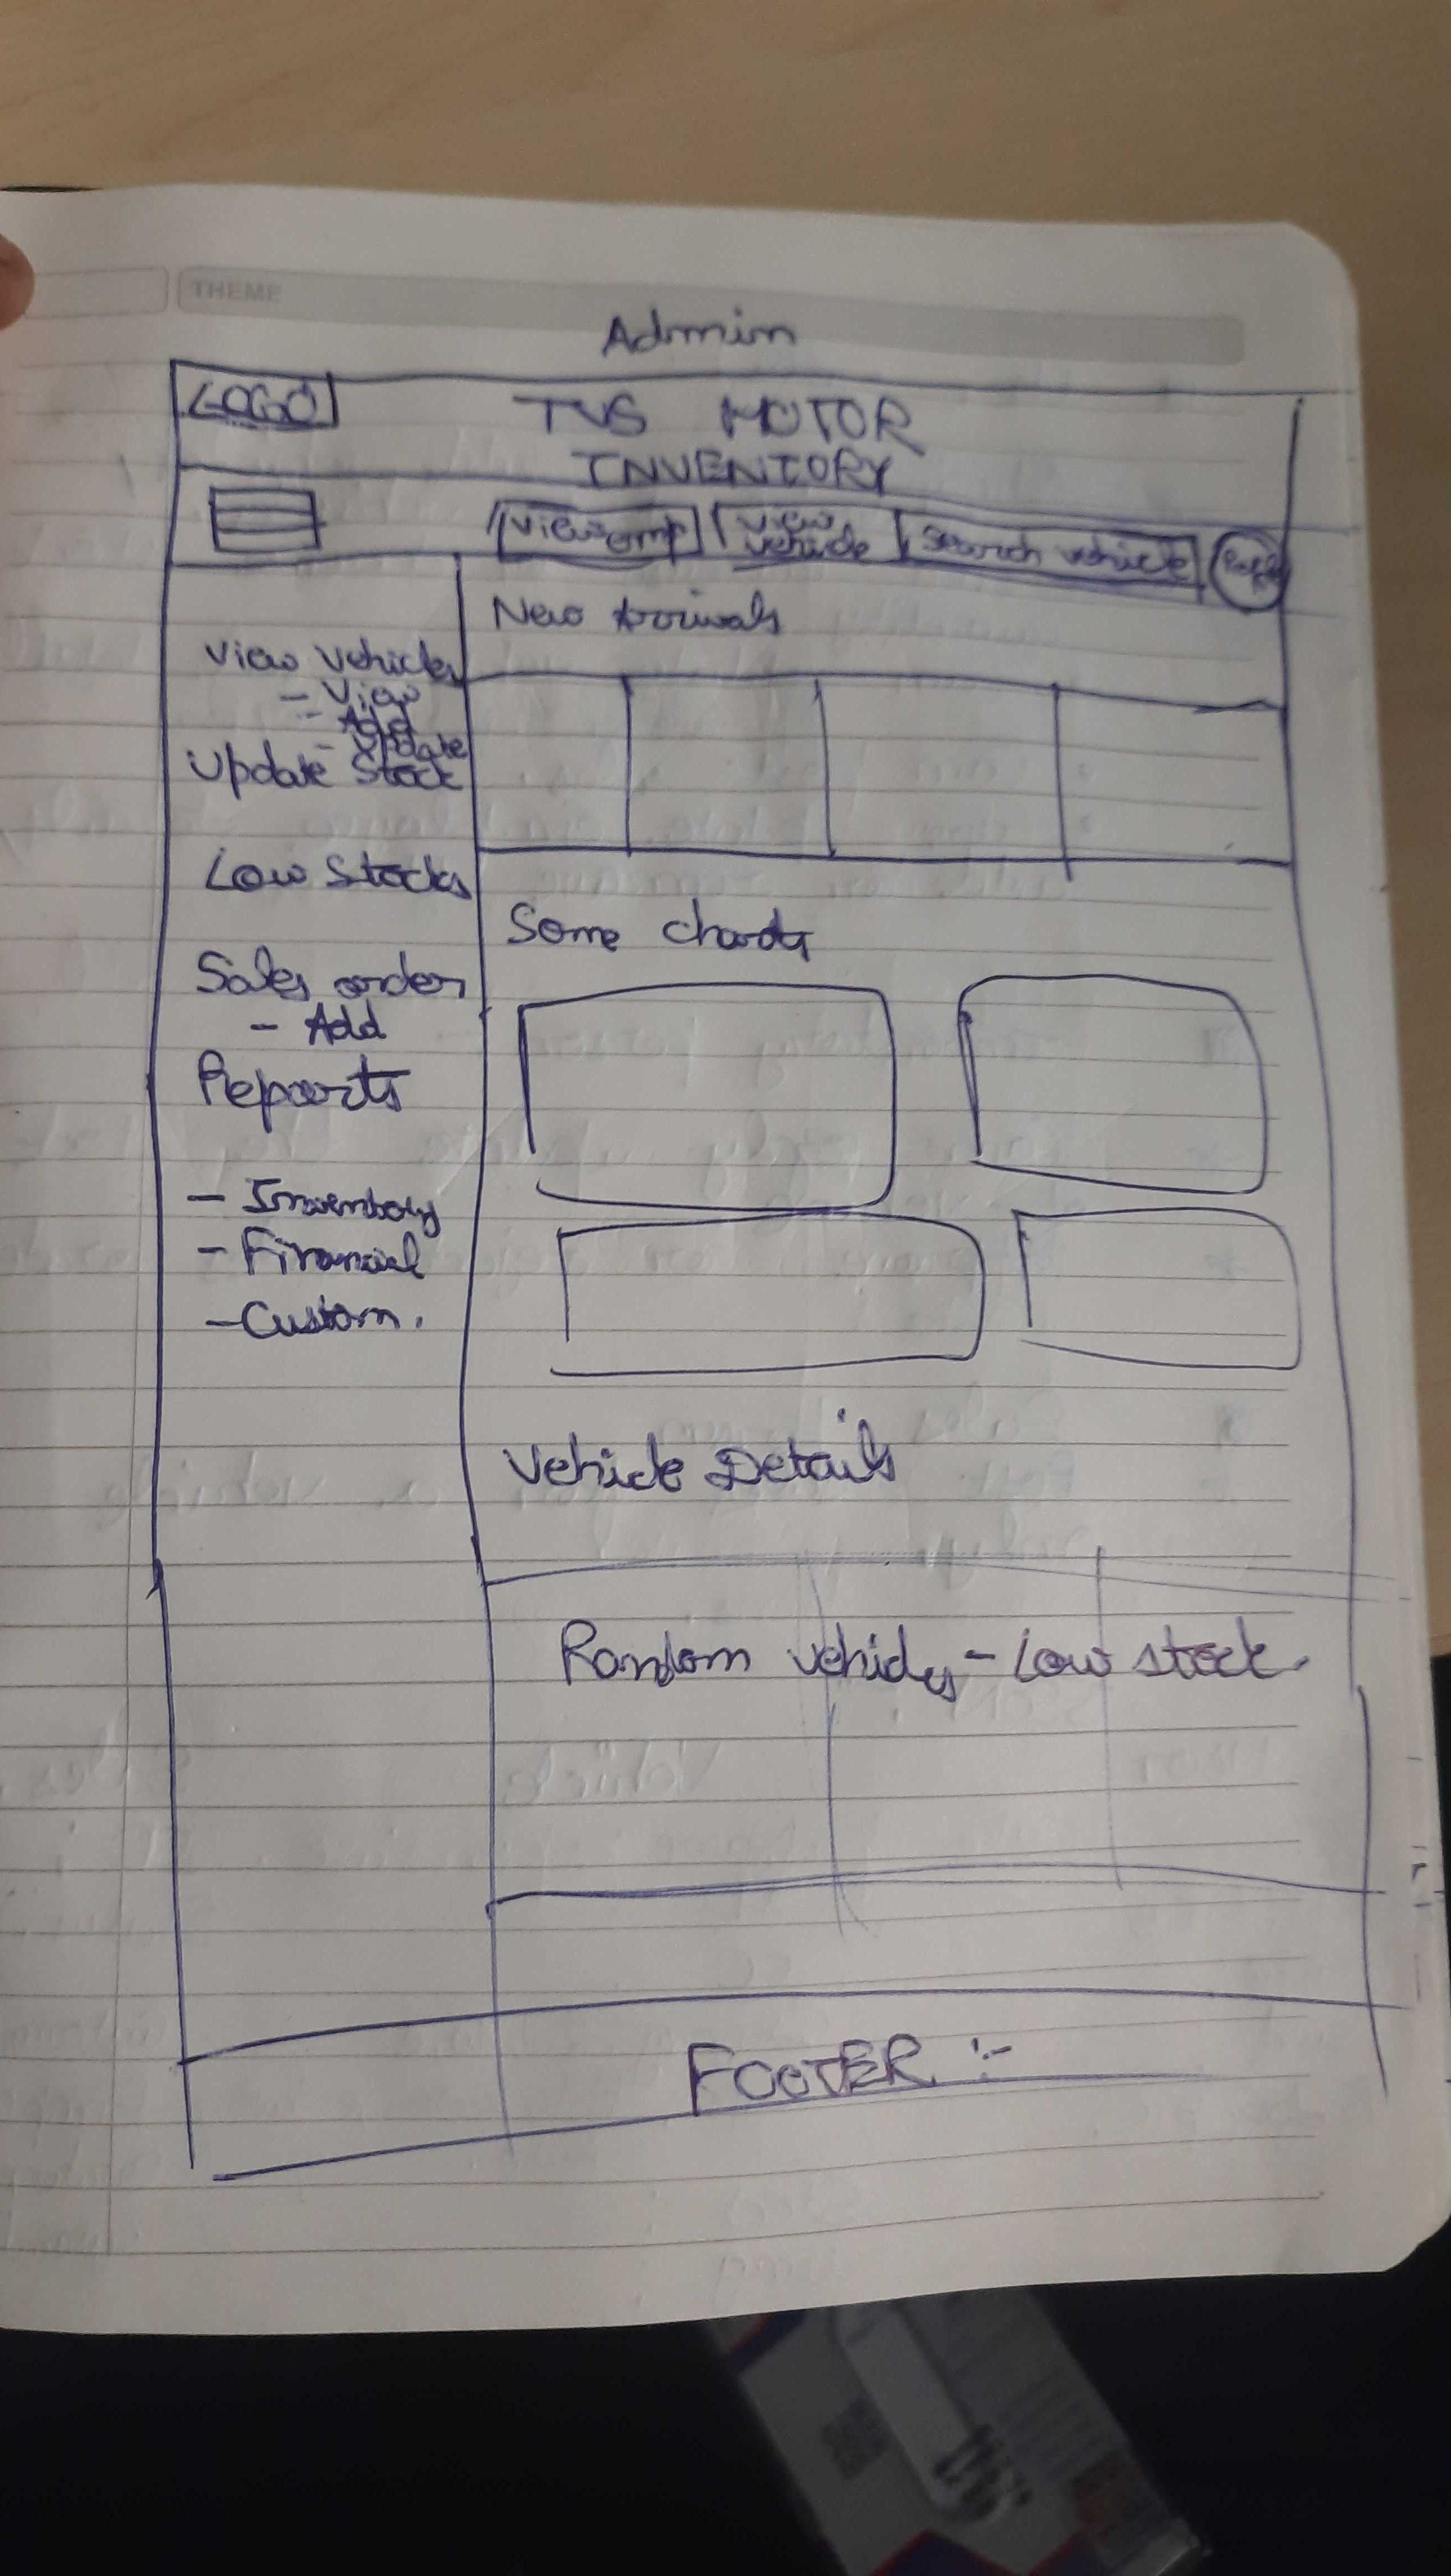 THEME
Admin
LOGO
TVS MOTOR
INVENTORY
View emp
View vehicle
Search vehicle
New Arrivals
View Vehicles
- View
- Add
- Update
Update Stock
Low Stocks
Some charts
Sales order
- Add
Reports
- Inventory
- Financial
- Custom.
Vehicle Details
Random vehicles - Low stock.
FOOTER :-